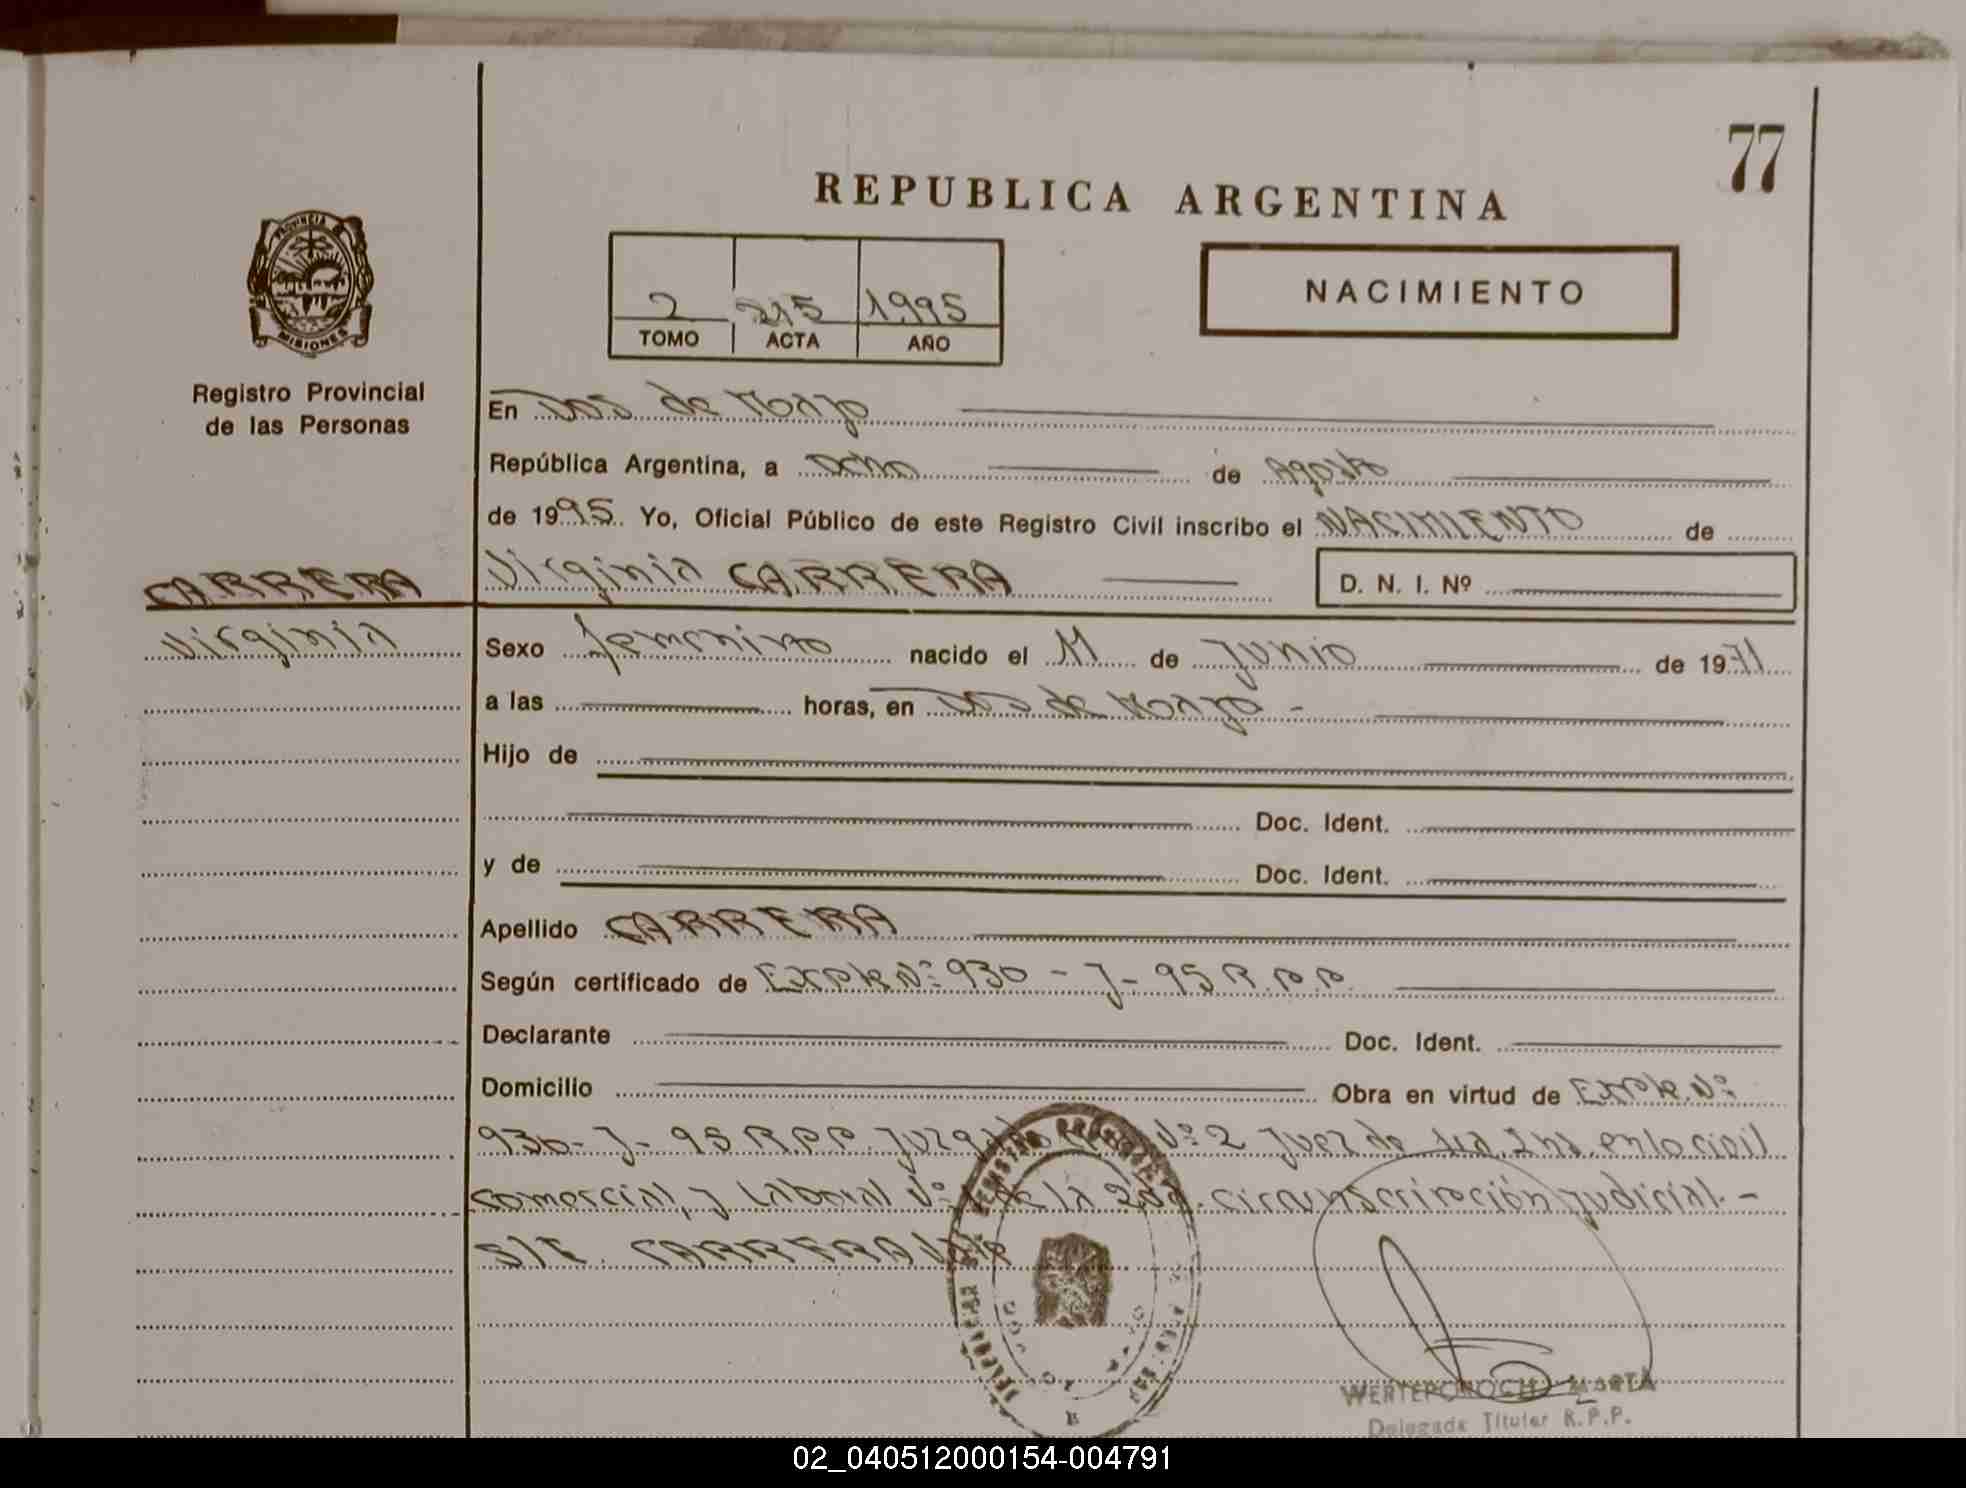 77
REPUBLICA ARGENTINA
PROVINCIA DE
MISIONES
Registro Provincial
de las Personas
2 215 1995
TOMO ACTA AÑO
NACIMIENTO
En Dos de Mayo
República Argentina, a ocho de Agosto
de 1995 Yo, Oficial Público de este Registro Civil inscribo el NACIMIENTO de
CARRERA Virginia CARRERA D. N. I. Nº
Virginia
Sexo femenino nacido el 11 de Junio de 1971
a las horas, en Dos de Mayo -
Hijo de
Doc. Ident.
y de Doc. Ident.
Apellido CARRERA
Según certificado de Expte Nº 930 - J - 95 R.P.P.
Declarante Doc. Ident.
Domicilio Obra en virtud de Expte. Nº
930- J- 95 R.P.P. Juzgado Nº 2 Juez de 1ra. Ins. en lo civil
comercial, y Laboral Nº de la 2da. circunscripción judicial. -
S/I. CARRERA
MARTA
Delegada Titular R.P.P.
02_040512000154-004791